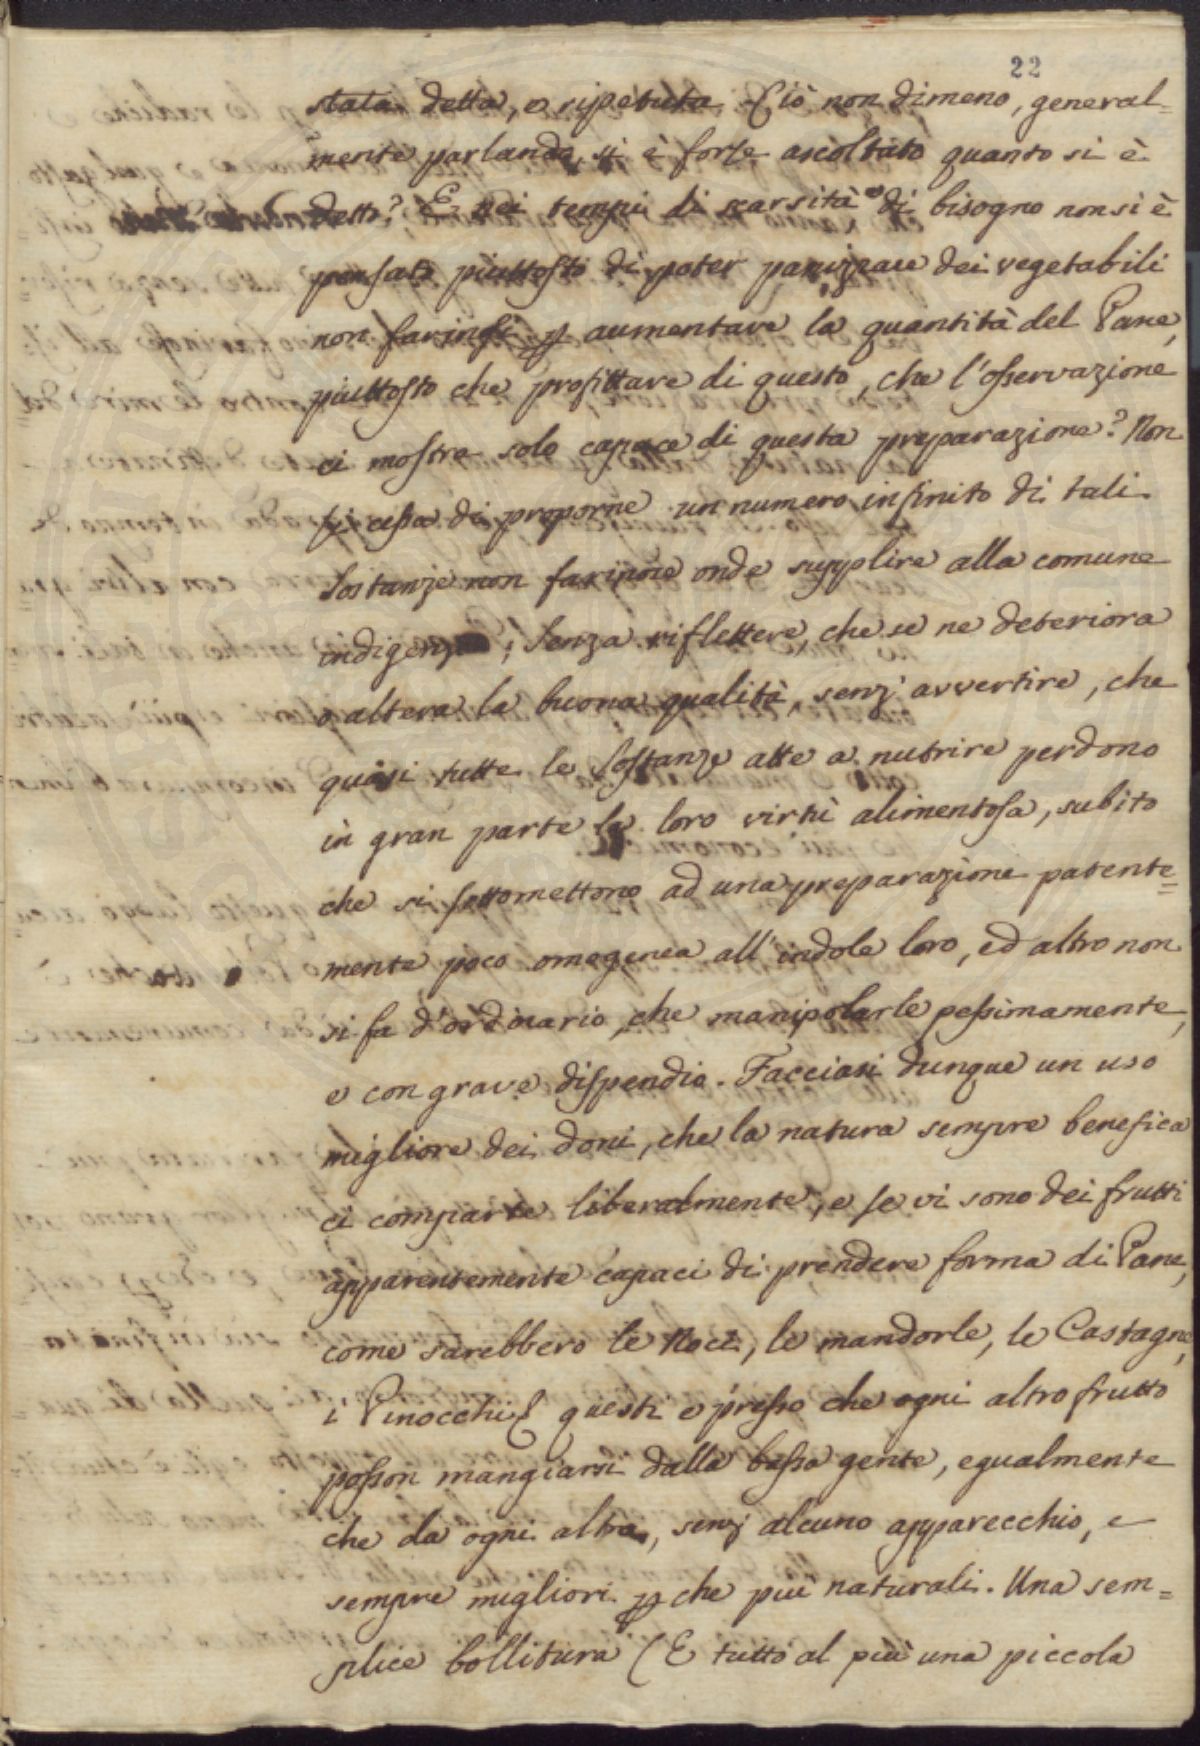 22
stata detta, e ripetuta. Ciò non dimeno, general=
mente parlando, si è forse ascoltato quanto si è
detto? E nei tempi di scarsità e di bisogno non si è
pensato piuttosto di poter panizzare dei vegetabili
non farinosi p aumentare la quantità del Pane,
piuttosto che profittare di questo, che l'osservazione
ci mostra solo capace di questa preparazione? Non
si cessa di proporne un numero infinito di tali
Sostanze non farinose onde supplire alla comune
indigenza; Senza riflettere, che se ne deteriora
o altera la buona qualità, senz' avvertire, che
quasi tutte le Sostanze atte a nutrire perdono
in gran parte la loro virtù alimentosa, subito
che si sottomettono ad una preparazione patente=
mente poco omogenea all' indole loro, ed altro non
si fa d'ordinario, che manipolarle pessimamente,
e con grave dispendio. Facciasi dunque un uso
migliore dei doni, che la natura sempre benefica
ci comparte liberalmente, e se vi sono dei frutti
apparentemente capaci di prendere forma di Pane,
come sarebbero le Noci, le mandorle, le Castagne,
i Pinocchi questi e presso che ogni altro frutto
posson mangiarsi dalla bassa gente, egualmente
che da ogni altra, senz alcuno apparecchio, e
sempre migliori p che più naturali. Una sem=
plice bollitura (E tutto al più una piccola